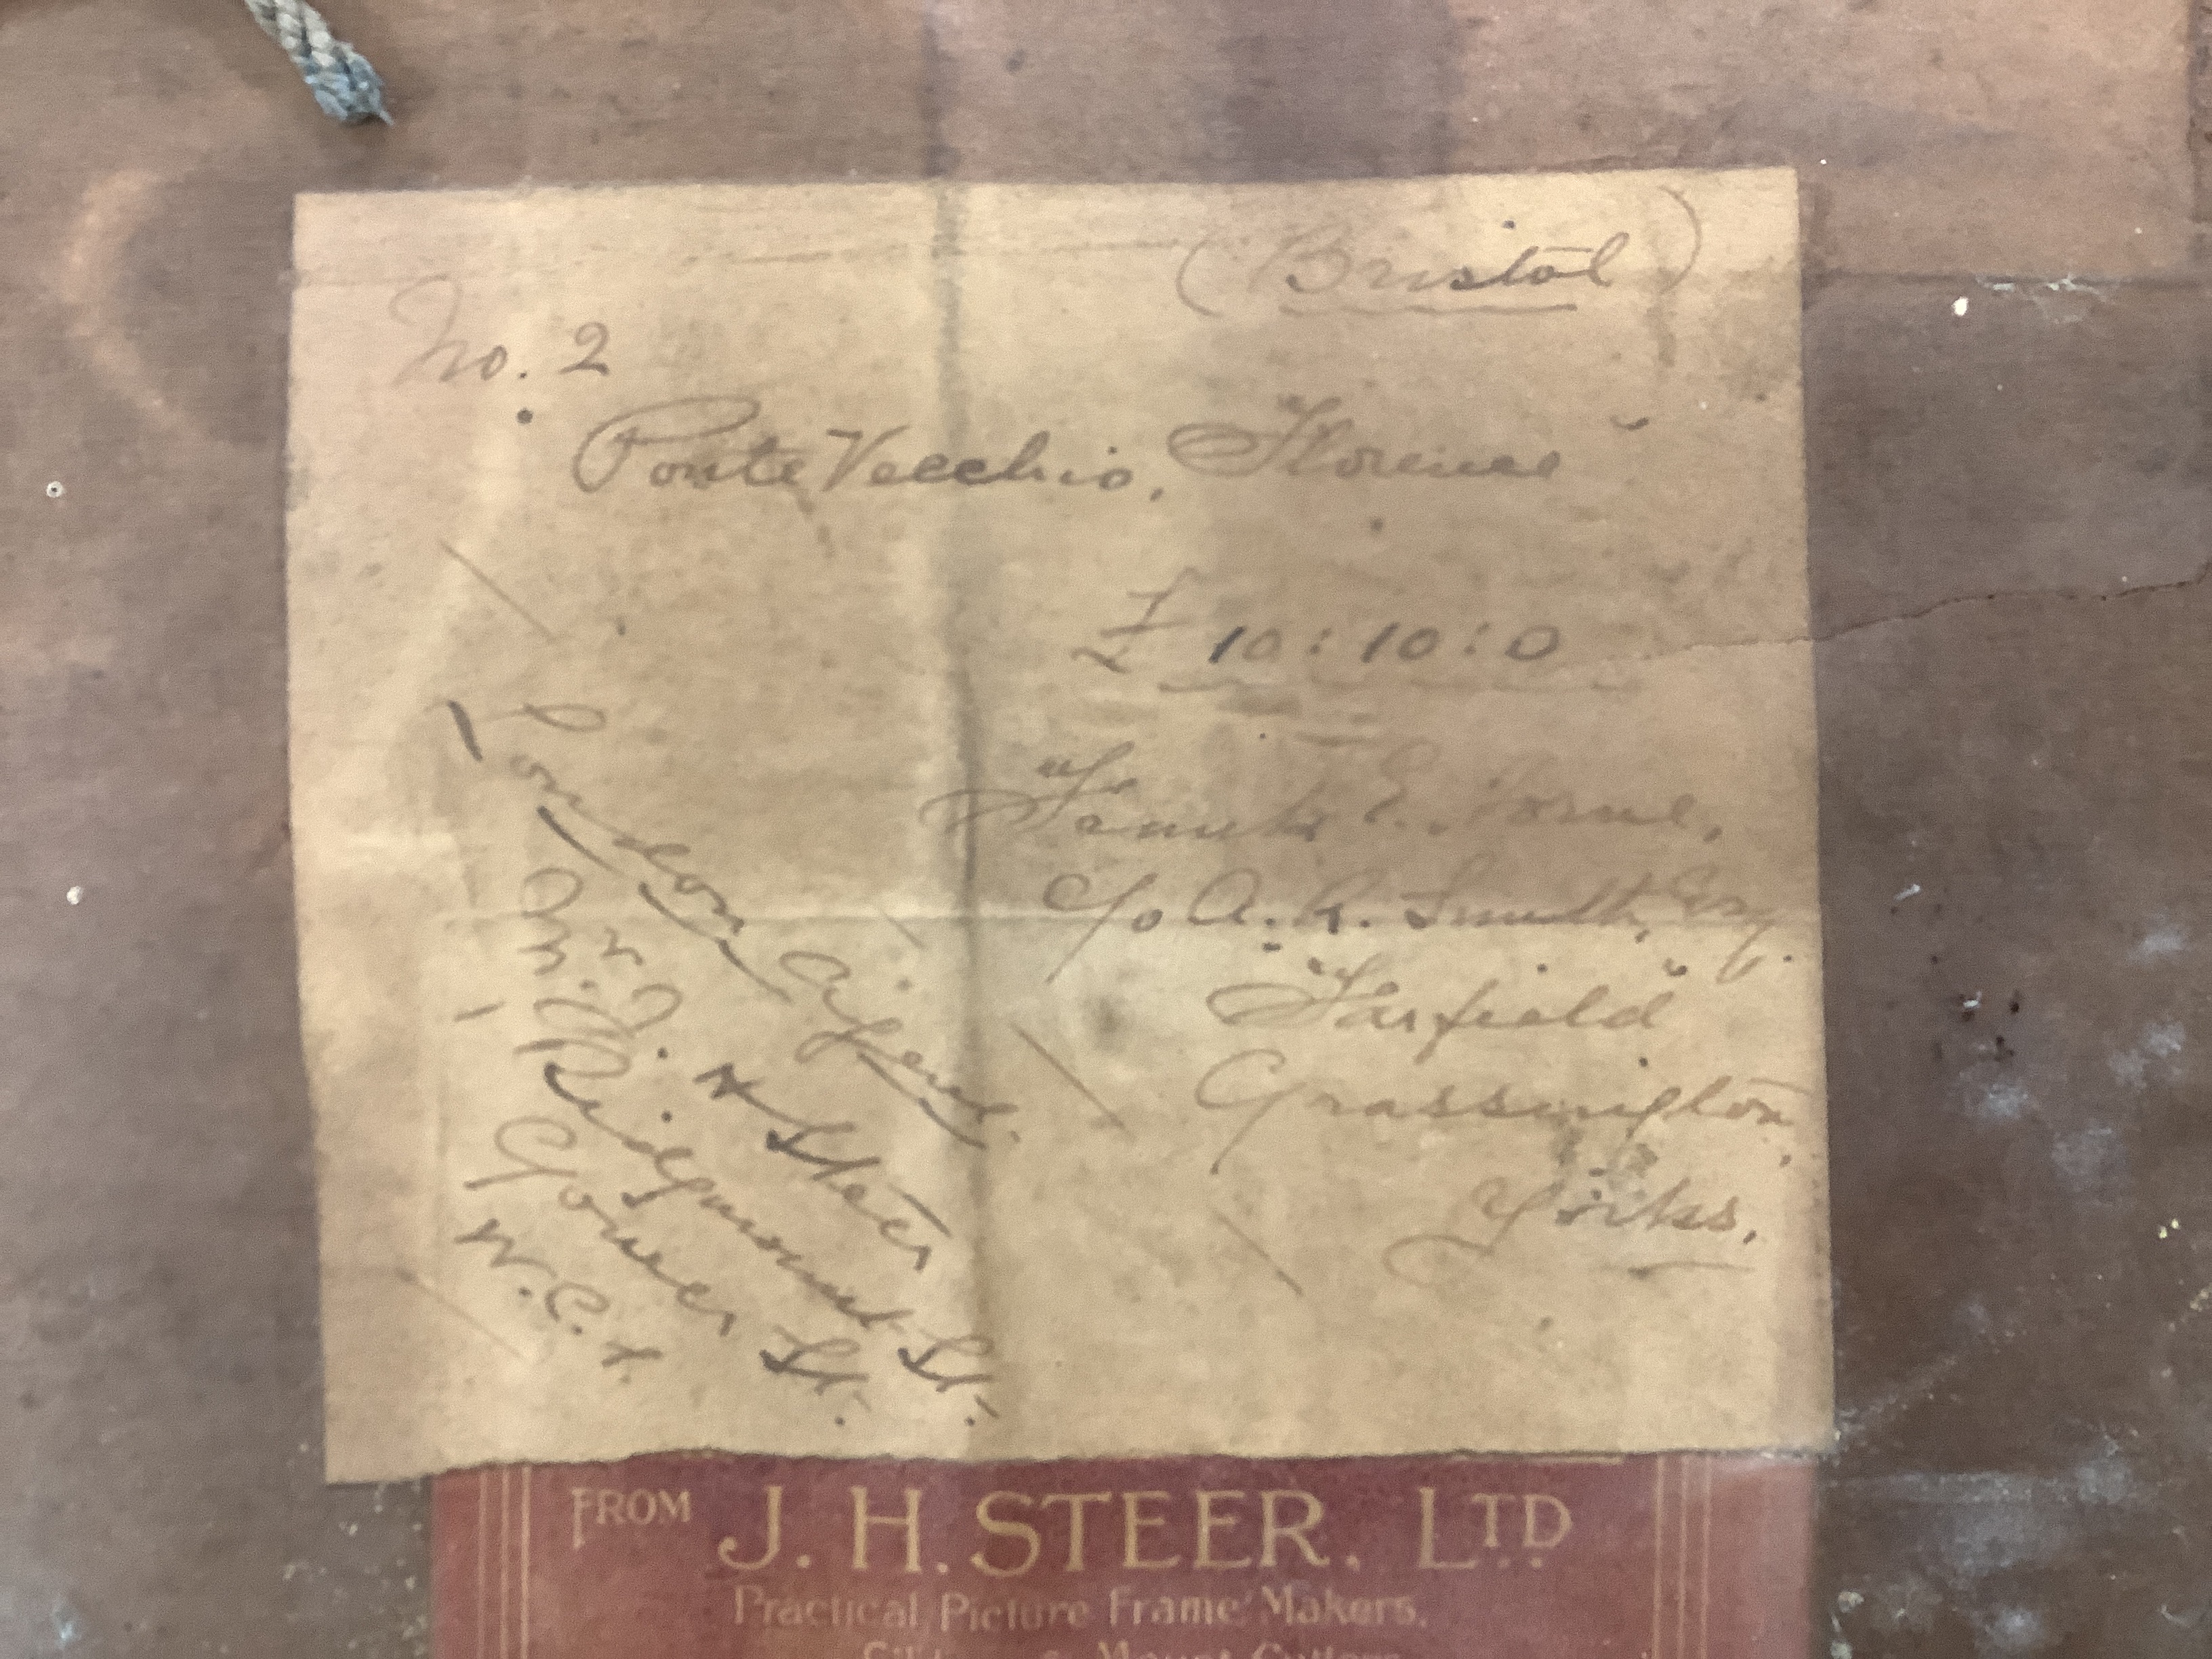 (Bristol)
No. 2
Ponte Vecchio, Florence
£ 10 : 10 : 0
Frank E. Horne,
c/o A. R. Smith, Esq.
"Fairfield"
Grassington,
Yorks.
London Agent.
Mr J. H. Steer
3. Ridgmount St.
Gower St.
W.C.1
FROM J. H. STEER. LTD
Practical Picture Frame Makers,